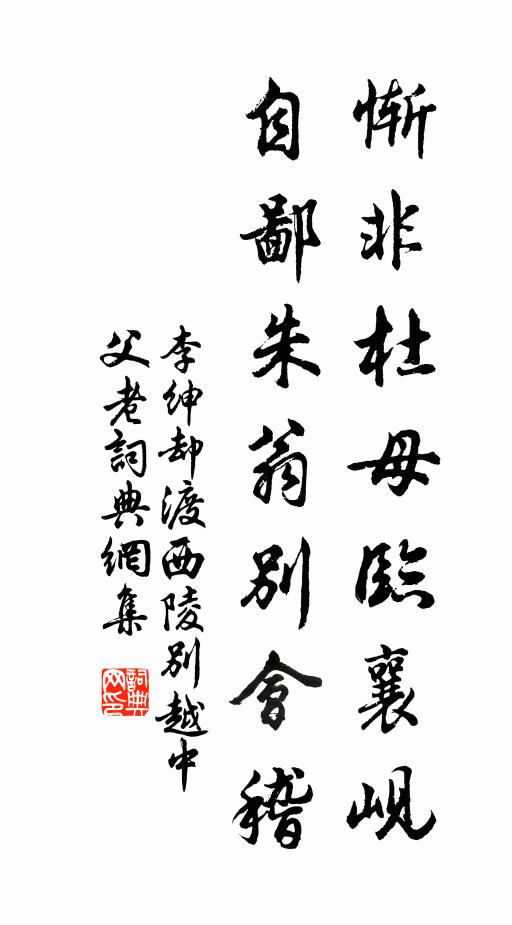 慚非杜母臨襄峴
自鄙朱翁別會稽
李紳却渡西陵別越中
父老詞典網集
詞典
网印